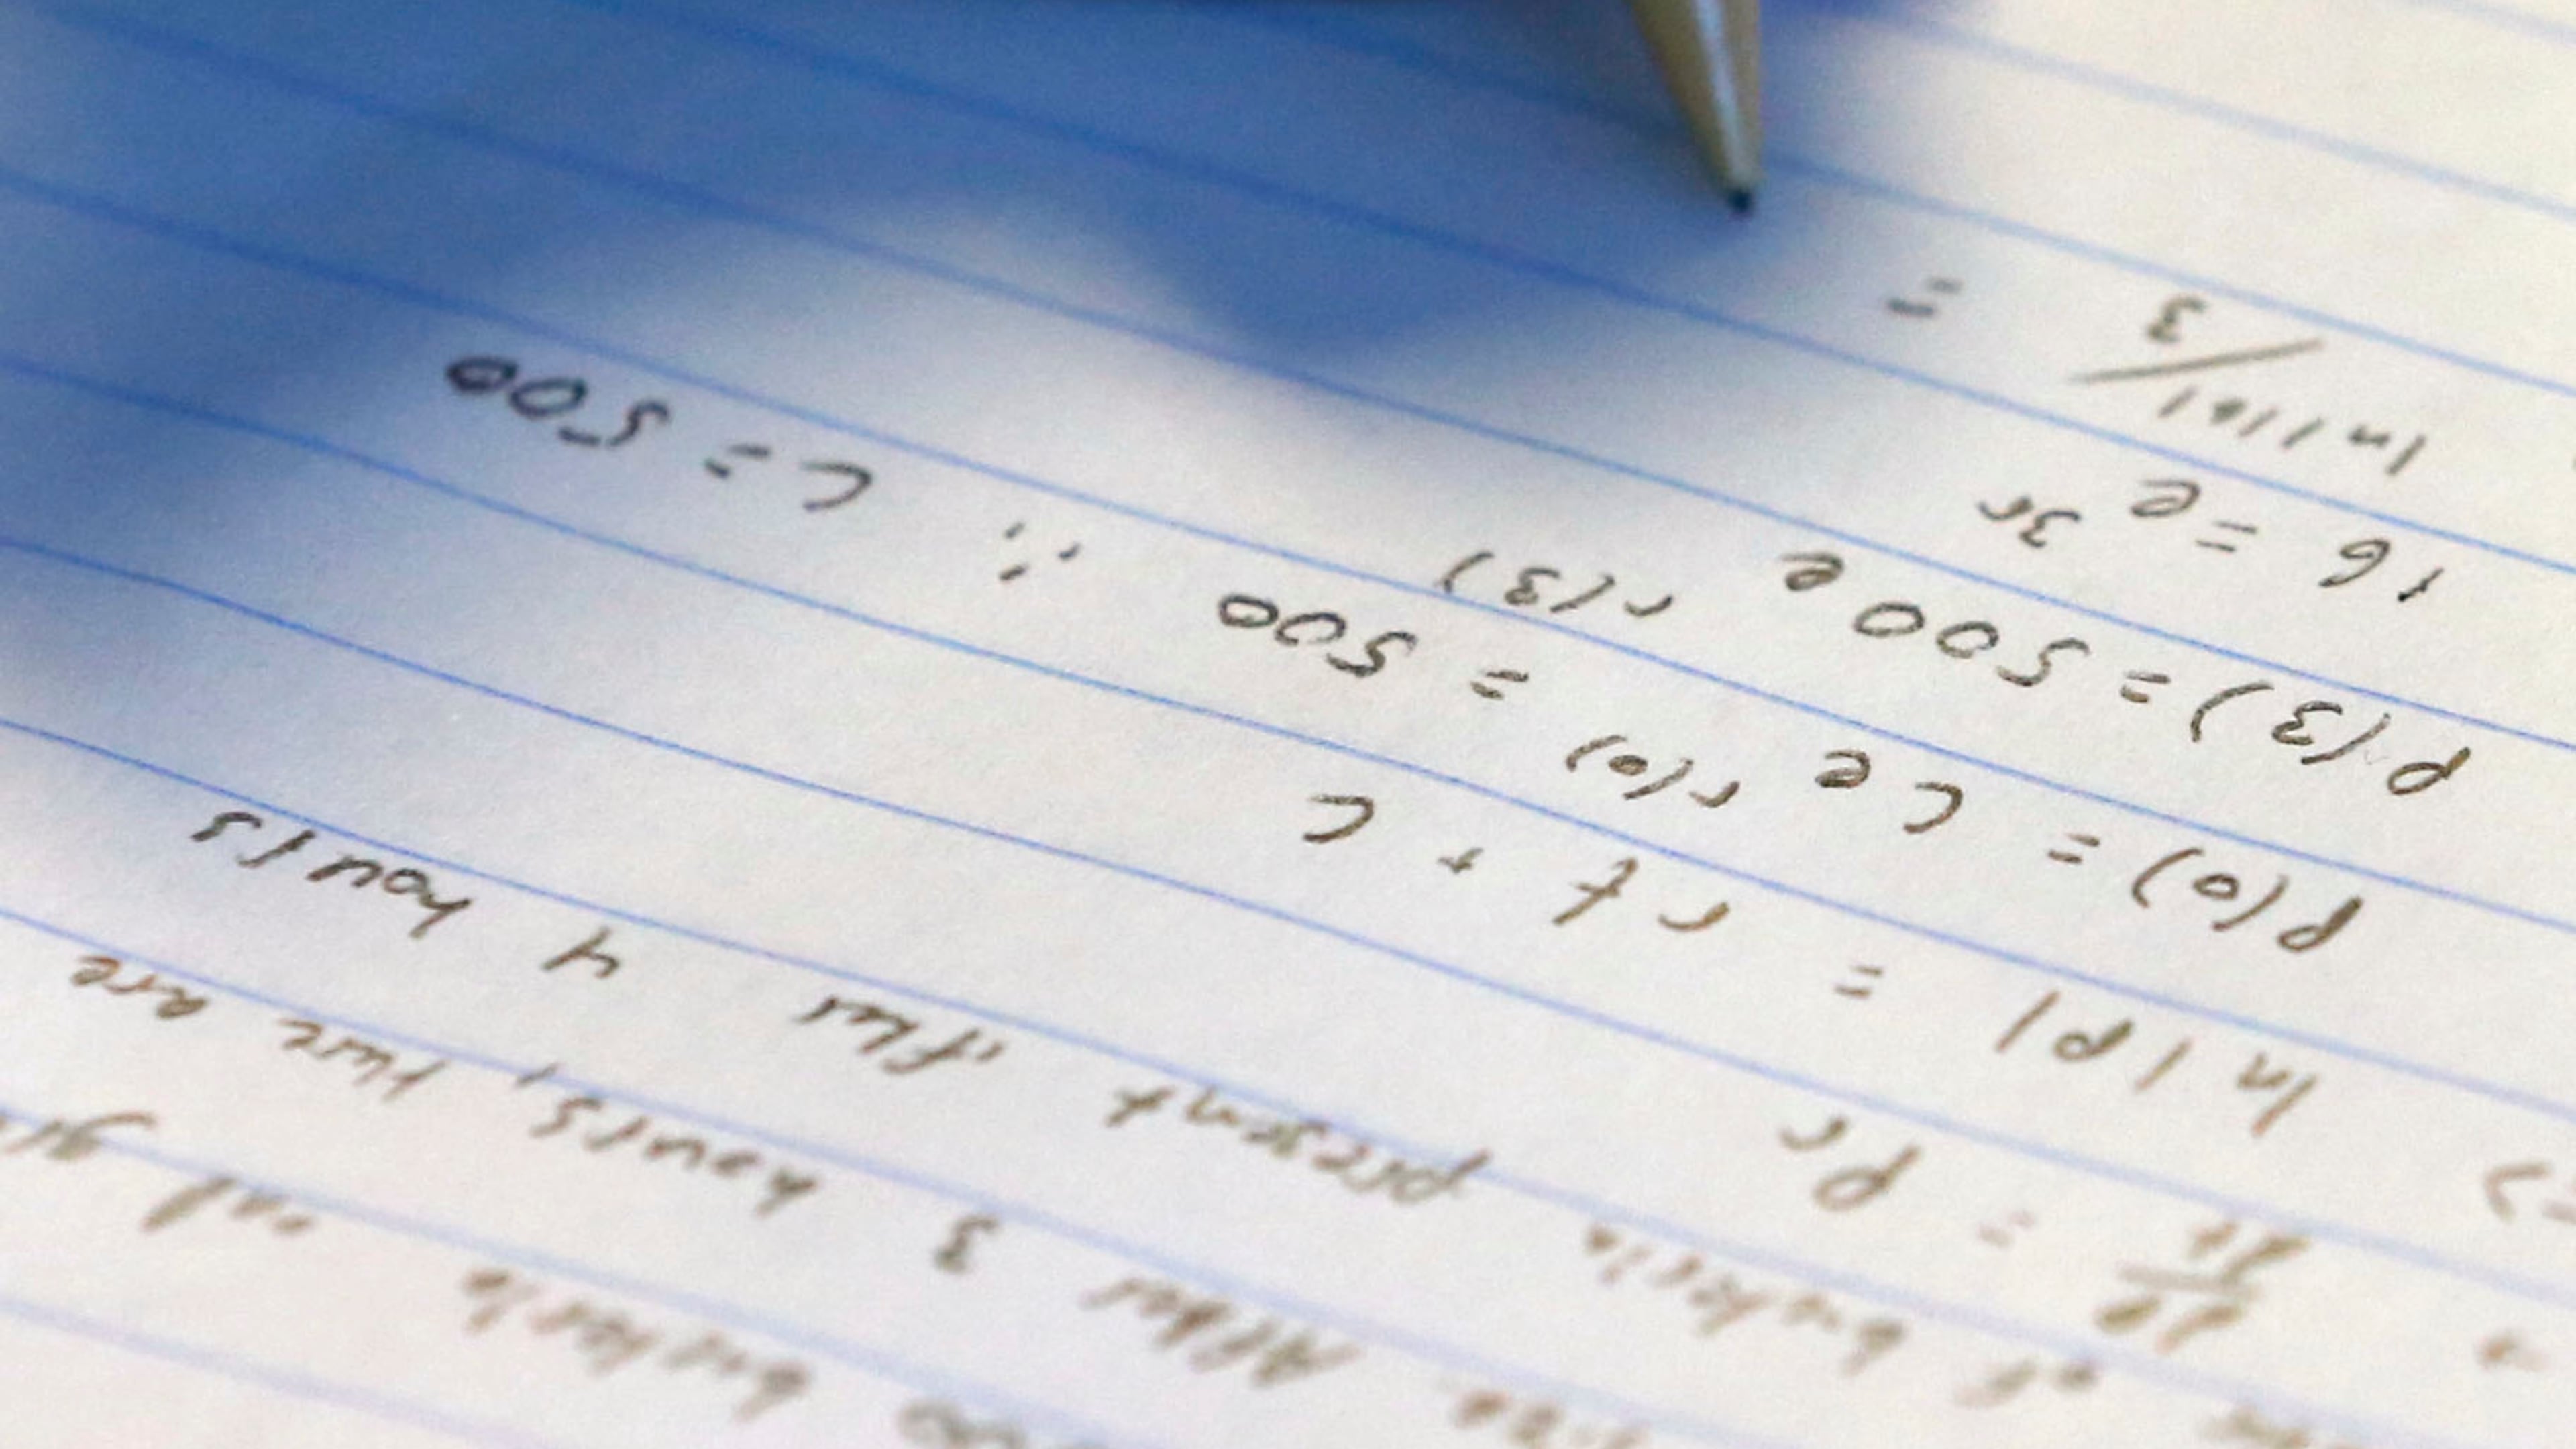 bacteria and
After 3 hours, there are
of bacteria present after 4 hours
dP/dt = Pr
=> ln|P| = rt + C
P(0) = Ce^r(0) = 500 ∴ C = 500
P(3) = 500e^r(3)
16 = e^3r
ln|16|/3 =